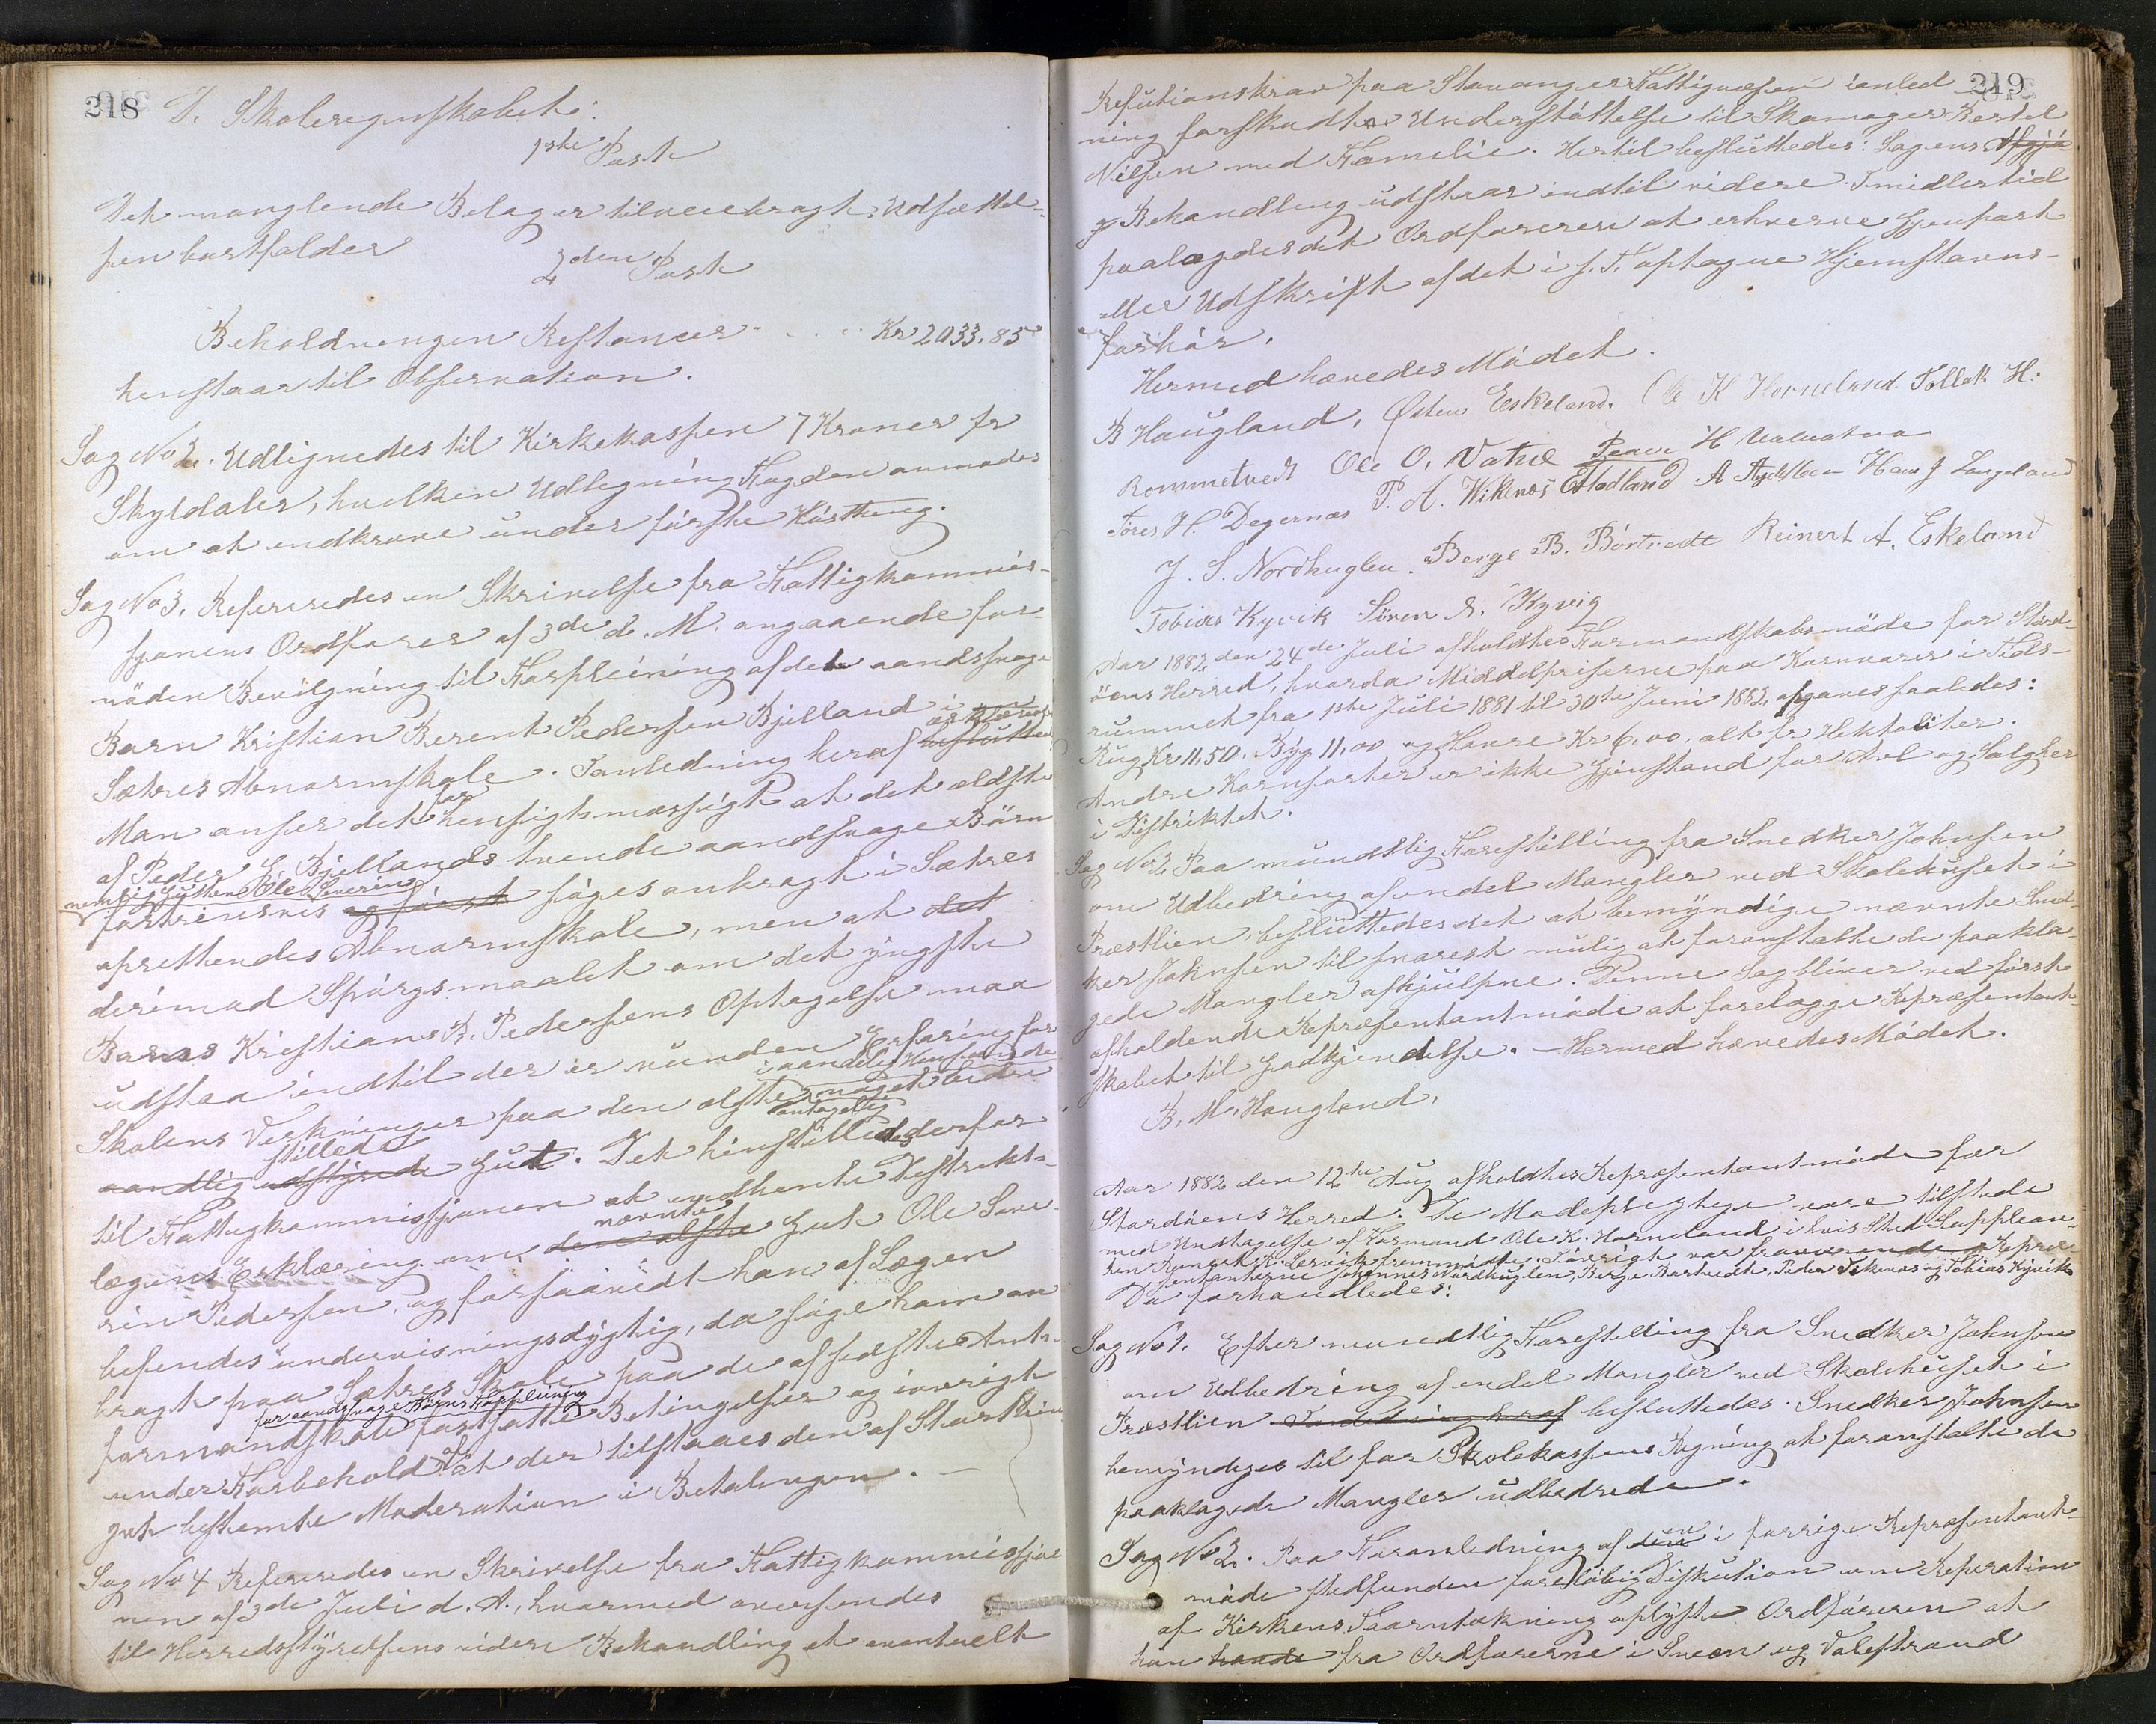 218
I. Skoleregnskabet:
1ste Post
Det manglende Belag er tilveiebragt; Udsættel-
sen bortfalder
2den Post
Beholdningen Restancer . . . . Kr 2033.85
henstaar til Observation.
Sag No 2. Udlignedes til Kirkekassen 7 Kroner pr
Skyldaler, hvilken Udligning Fogden anmodes
om at indkræve under første Høstthing.
Sag No 3. Refereredes en Skrivelse fra Fattigkommis-
sjonens Ordfører af 3die d. M. angaaende for-
nøden Bevilgning til Forpleining af det aandssvage
Barn Kristian Berent Pedersen Bjelland i
Sætres Abnormskole. I anledning heraf besluttedes erklæredes
Man anser det for hensigtsmæssigt at det ældste
af Peder G. Bjellands tvende aandssvage Børn
nemlig Gutten Ole Severin
forsøgsvis og først søges anbragt i Sætres
oprettendes Abnormskole, men at det
derimod Spørgsmaalet om det yngste
Barns Kristians B. Pedersens Optagelse maa
udstaa indtil der er vunden Erfaring for
Skolens Virkninger paa den ælste i aandelig Henseende meget antagelig bedre
aandlig udstyrede stillede Gut. Det henstilledes derfor
til Fattigkommissjonen at indhente Distrikts-
lægens Erklæring om den ælste nævnte Gut Ole Seve-
rin Pedersen, og forsaavidt han af Lægen
befindes undervisningsdygtig, da søge ham an
bragt paa Sætres Skole paa de af sidste Amts-
formandskab fastsatte Betingelser og iøvrigt
for aandssvage Børns Forpleining
under Forbehold af at der tilstaaes den af Storthin
get bestemte Moderation i Betalingen. —
Sag No 4 Refereredes en Skrivelse fra Fattigkommissjo
nen af 3de Juli d. A., hvormed oversendes
til Herredsstyrelsens videre Behandling et eventuelt
219
Refutionskrav paa Stavanger Fattigvæsen i anled
ning forskudt Understøttelse til Skomager Bertel
Nilsen med Familie. Hertil besluttedes: Sagens Afgjø
g Behandling udstaar indtil videre. Imidlertid
paalægdes det Ordføreren at erhverve Gjenpart
eller Udskrift af det i s. T. optagne Hjemstavns-
forhør.
Hermed hævedes Mødet.
B Haugland, Østen Eskeland. Ole K Horneland Tollak H.
Rommetvedt Ole O. Vatne Peder H Valvatna
Tøres H. Degernæs P. A. Vikenæs O Hadland A Hans J Langeland
J. S. Nordhuglen. Berge B. Børtvedt Reinert A. Eskeland
Tobias Kyvik Sören A. Kyvig
Aar 1882 den 24de Juli afholdtes Formandskabsmøde for Stord-
öens Herred, hvorda Middelpriserne paa Kornvarer i Tids-
rummet fra 1ste Juli 1881 til 30te Juni 1882 opgaves saaledes:
Rug Kr 11,50. Byg 11,00 og Havre Kr 6,00, alt pr Hektoliter.
Andre Kornsorter er ikke Gjenstand for Avl og Salg her
i Distriktet.
Sag No 2 Paa mundtlig Forestilling fra Snedker Johnsen
om Udbedring af endel Mangler ved Skolehuset i
Præstlien, besluttedes det at bemyndige nævnte Sned-
ker Johnsen til snarest mulig at foranstalte de paakla-
gede Mangler afhjulpne. Denne Sag bliver ved først
afholdende Repræsentantmøde at forelægge Repræsentant-
skabet til Godkjendelse. — Hermed hævedes Mødet.
B. M. Haugland.
Aar 1882 den 12te Aug afholdtes Repræsentantmøde for
Stordöens Herred. De Mødepligtige vare tilstede
med Undtagelse af Formand Ole K. Horneland i hvis Sted Supplean-
ten R. Lervik fremmødte. Iøvrigt var fraværende af Repræ-
sentanterne Johannes Nordhuglen, Berge Børtvedt, Peder Vikenæs og Tobias Kyvik
Da forhandledes:
Sag No 1. Efter mundtlig Forestilling fra Snedker Johnsen
om Udbedring af endel Mangler ved Skolehuset i
Præstlien I anledning heraf besluttedes. Snedker Johnsen
bemyndiges til for Skolekassens Regning at foranstalte de
paaklagede Mangler udbedrede.
Sag No 2. Paa Foranledning af den en i forrige Repræsentant-
møde stedfunden foreløbig Diskution om Reperation
af Kirkens Taarntækning oplyste Ordføreren at
han havde fra Ordførerne i Sveen og Valestrand